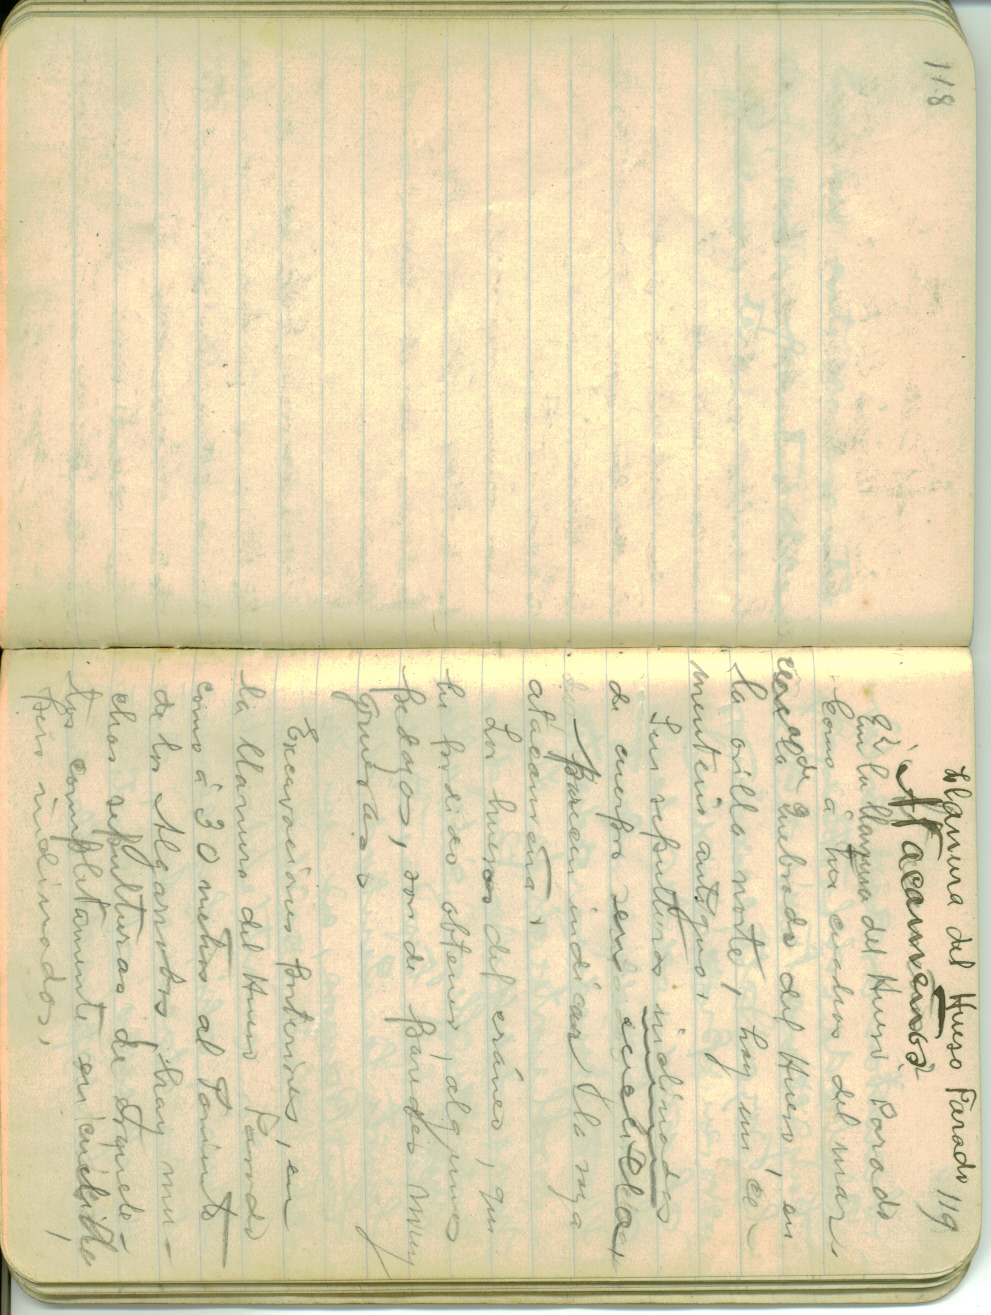 118
Llanura del Hueso Parado 119
"Atacameños"
En la llanura del Hueso Parado
como á tres cuadras del mar,
cerca de la Quebrada del Hueso, en
la orilla norte, hay un ce-
menterio antiguo.
Sus sepulturas inclinadas
de cuerpo semi cuclilla,
parecen indicar la raza
atacameña.
Los huesos del cráneo, que
he podido obtener, algunos
pedazos, son de paredes muy
gruesas
Excavaciones posteriores, en
la llanura del Hueso Parado
como á 30 metros al Poniente
de los Algarrobos, hay mu-
chas sepulturas de esquele-
tos completamente en cuclilla,
pero inclinados,